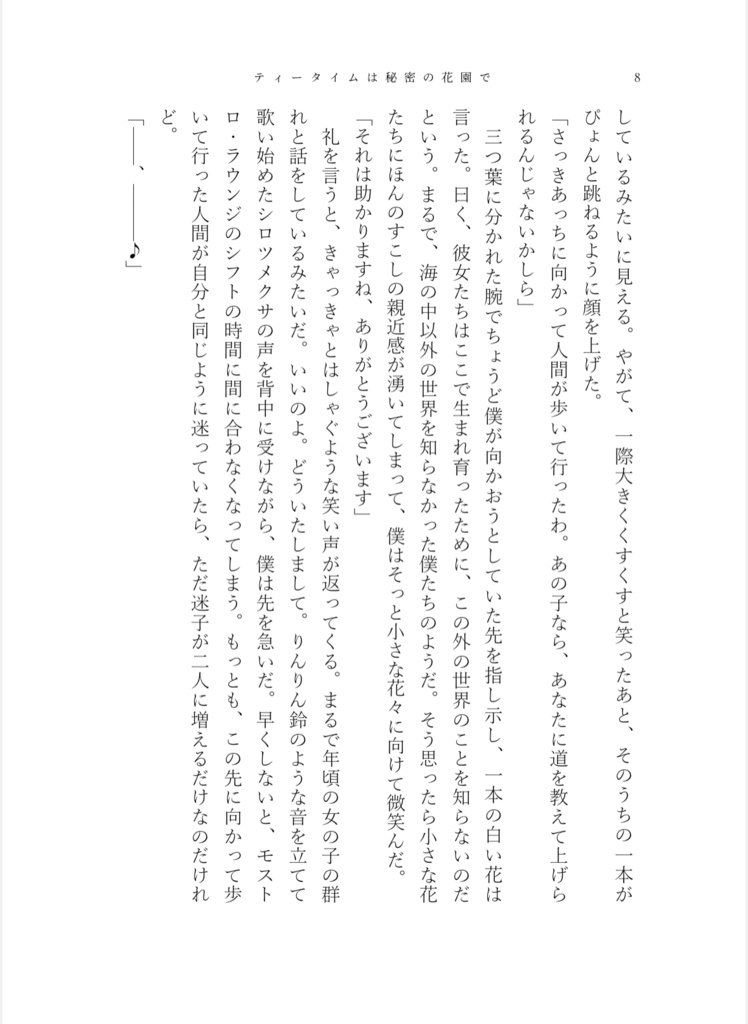 ティータイムは秘密の花園で
8
しているみたいに見える。やがて、一際大きくくすくすと笑ったあと、そのうちの一本が
ぴょんと跳ねるように顔を上げた。
「さっきあっちに向かって人間が歩いて行ったわ。あの子なら、あなたに道を教えて上げら
れるんじゃないかしら」
　三つ葉に分かれた腕でちょうど僕が向かおうとしていた先を指し示し、一本の白い花は
言った。曰く、彼女たちはここで生まれ育ったために、この外の世界のことを知らないのだ
という。まるで、海の中以外の世界を知らなかった僕たちのようだ。そう思ったら小さな花
たちにほんのすこしの親近感が湧いてしまって、僕はそっと小さな花々に向けて微笑んだ。
「それは助かりますね、ありがとうございます」
　礼を言うと、きゃっきゃとはしゃぐような笑い声が返ってくる。まるで年頃の女の子の群
れと話をしているみたいだ。いいのよ。どういたしまして。りんりん鈴のような音を立てて
歌い始めたシロツメクサの声を背中に受けながら、僕は先を急いだ。早くしないと、モスト
ロ・ラウンジのシフトの時間に間に合わなくなってしまう。もっとも、この先に向かって歩
いて行った人間が自分と同じように迷っていたら、ただ迷子が二人に増えるだけなのだけれ
ど。
「――、―――♪」